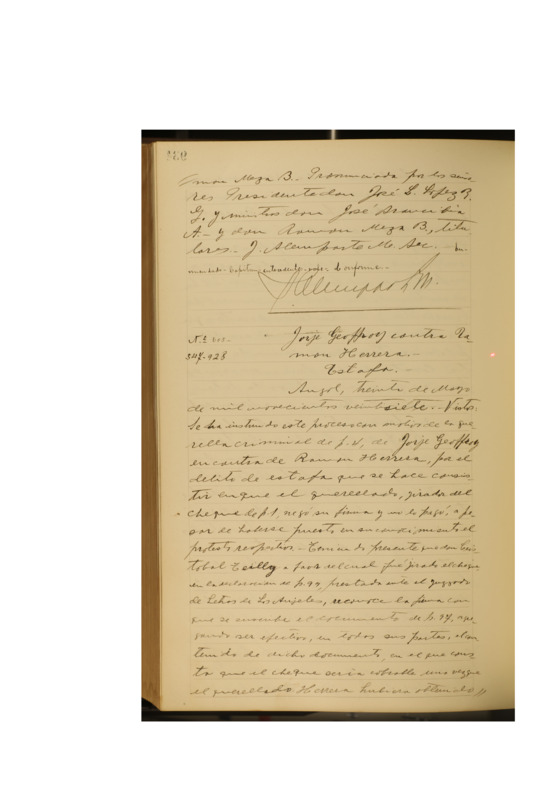 mon Meza B.- Pronunciada por los seño
res Presidente don José L. López
G. y ministros don José Arancibia
A.- y don Ramon Meza B., titu
lares. J. Alemparte M. Sec.-
N.º
Jorje Geoffroy contra Ra
mon Herrera.-
Estafa.-
Angol, treinta de Mayo
de mil novecientos veintisiete.- Vistos.
Se ha instruido este proceso con motivo de la que
rella criminal de f. de Jorje Geoffroy
en contra de Ramon Herrera, por el
delito de estafa que se hace consis
tir en que el querellado, girador del
cheque de f 1, negó su firma y no lo pagó, a pe
sar de haberse puesto en su conocimiento el
protesto respectivo.- Teniendo presente que don Cris
tobal a favor del cual fué jirado el cheque,
en la declaracion de f. prestada ante el Juzgado
de Letras de Los Anjeles, reconoce la firma con
que se suscribe el documento de f. 27, agre
gando ser efectivo, en todas sus partes, el con
tenido de dicho documento, en el que cons
ta que el cheque seria cobrable una vez que
el querellado Herrera hubiera obtenido